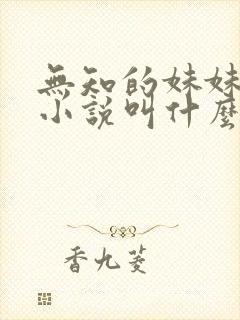 無知的妹妹
小說叫什麼
香九菱